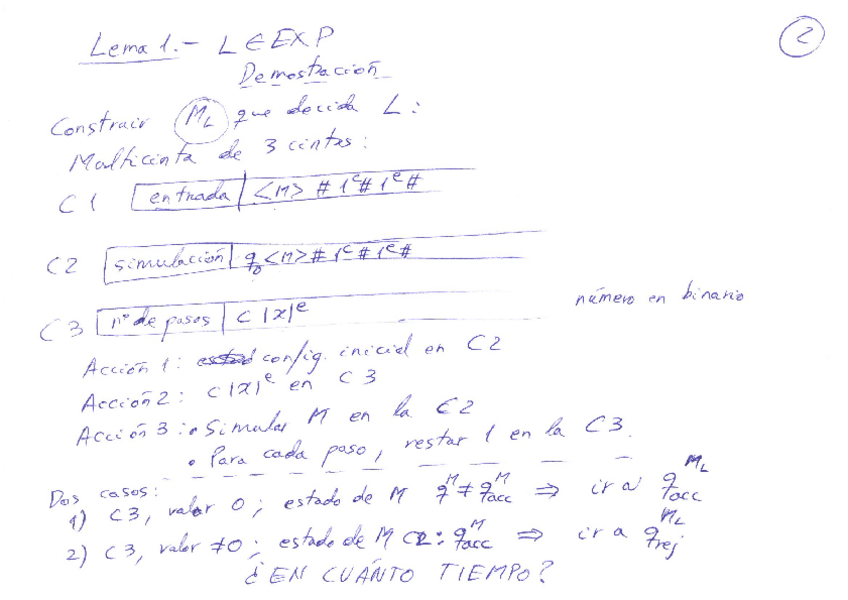 2
Lema 1.- L ∈ EXP
Demostración
Construir M_L que decida L:
Multicinta de 3 cintas:
C 1 entrada | <M> # 1^c # 1^e #
C2 simulación | q_0 <M> # 1^c # 1^e #
C 3 nº de pasos | c |x|^e número en binario
Acción 1: config. inicial en C2
Acción 2: c |x|^e en C 3
Acción 3: • Simular M en la C2
• Para cada paso, restar 1 en la C3.
Dos casos:
1) C3, valor 0; estado de M q^M ≠ q_acc^M ⇒ ir a q_acc^{M_L}
2) C3, valor ≠0; estado de M C2: q_acc^M ⇒ ir a q_rej^{M_L}
¿EN CUÁNTO TIEMPO?